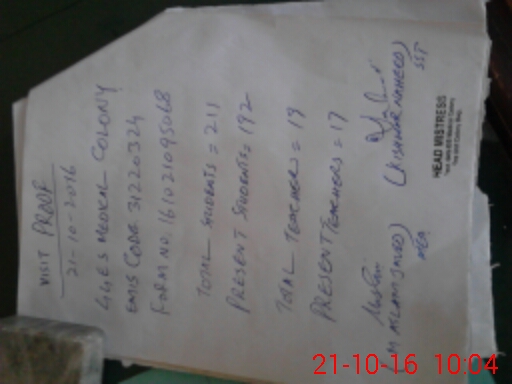 VISIT PROOF
21-10-2016
GGES MEDICAL COLONY
EMIS CODE 31220324
FORM NO. 161021095068
TOTAL STUDENTS = 211
PRESENT STUDENTS = 192
TOTAL TEACHERS = 19
PRESENT TEACHERS = 17
(KISHWAR NAHEED)
SST
HEAD MISTRESS
MEA
21-10-16 10:04